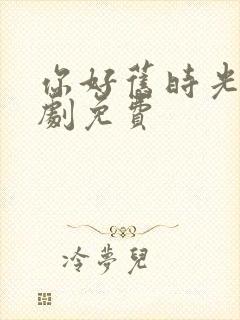 你好舊時光
劇免費
冷夢兒